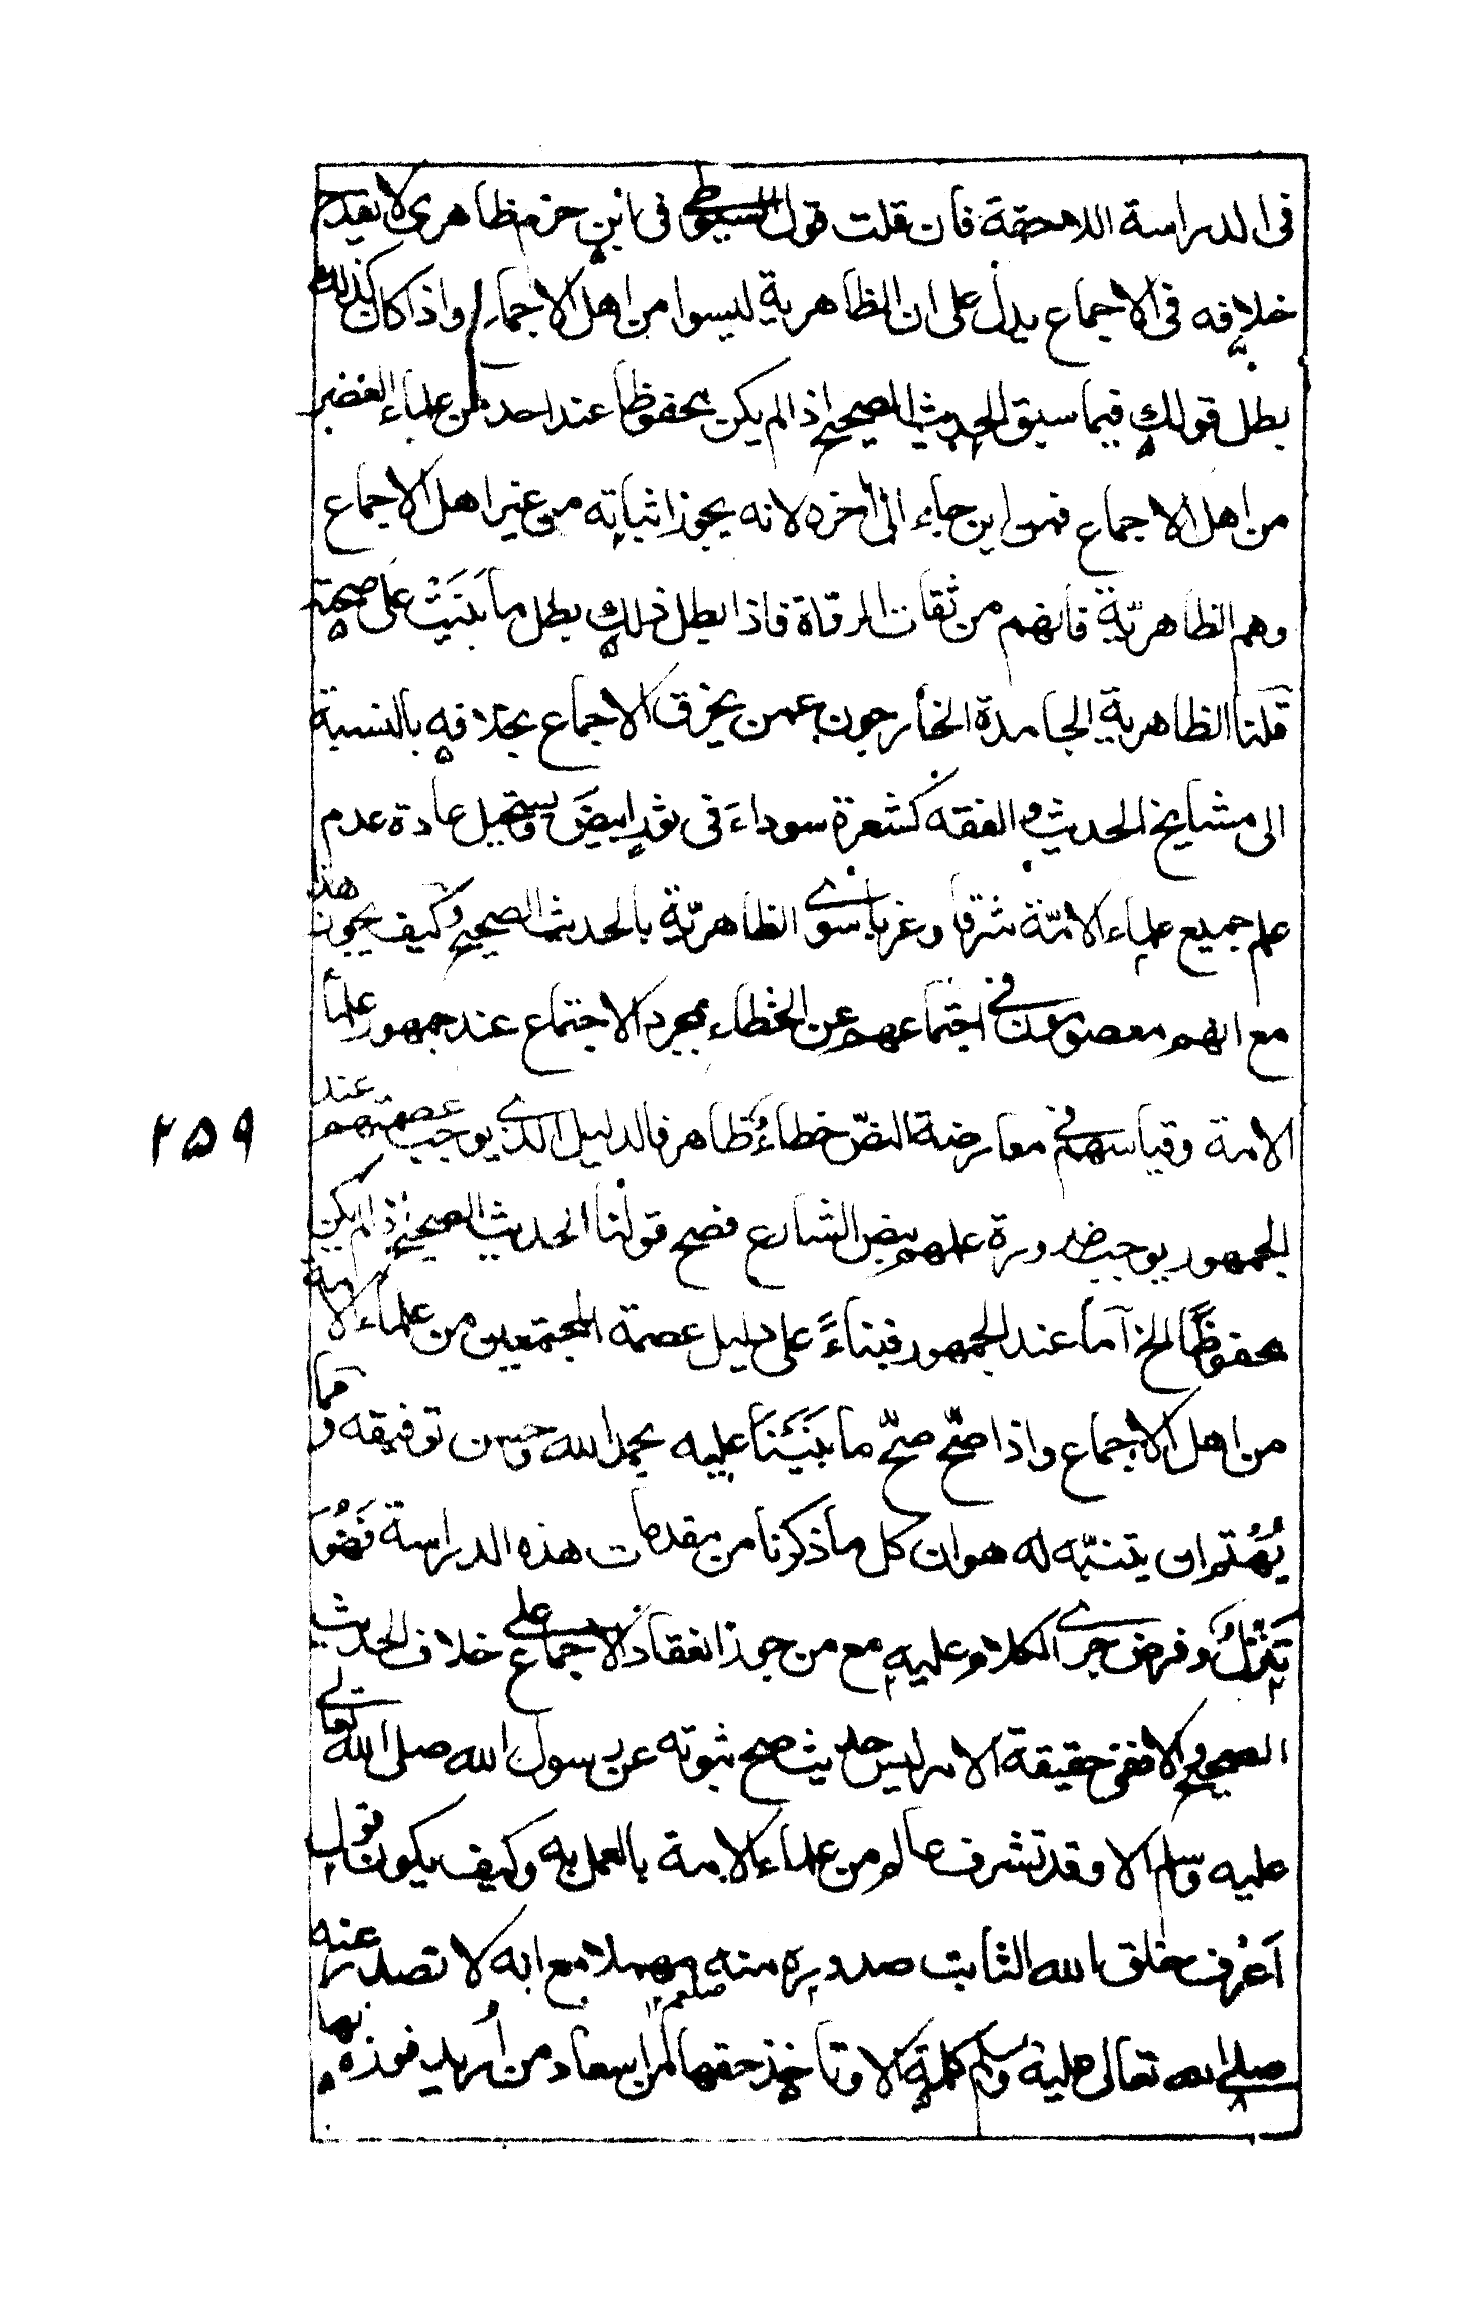 فى الدراسة اللاحقة فان قلت قول السيوطي فى ابن حزم ظاهرى لا يقدح
خلافه فى الاجماع يدل على ان الظاهرية ليسوا من اهل الاجماع واذا كان كذلك
بطل قولك فيما سبق الحديث الصحيح اذ الم يكن محفوظا عند احد من علماء العصر
من اهل الاجماع فمن اين جاء الى اخره لانه يجوز اثباته من غير اهل الاجماع
وهم الظاهريّة فانهم من ثقات الرقاة فاذا بطل ذلك بطل ما بَنَيْتَ على صحته
قلنا الظاهرية الجامدة الخارجون عمن يخرق الاجماع بخلافه بالنسبة
الى مشايخ الحديث والفقه كشعرة سوداءَ فى ثور ابيضَ ويستحيل عادة عدم
علم جميع علماء الامّة شرقا وغربا سوى الظاهريّة بالحديث الصحيح وكيف يجوز هذا
مع انهم معصومون فى اجتماعهم عن الخطاء بمجرد الاجتماع عند جمهور علماء
الامة وقياسهم فى معارضة النصّ خطاءٌ ظاهر فالدليل الذى يوجب عصمتهم عند
الجمهور يوجب ضرورة علمهم بنص الشارع فصح قولنا الحديث الصحيح اذ الم يكن
محفوظًا الخ آما عند الجمهور فبناءً على دليل عصمة المجتمعين من علماء الامة
من اهل الاجماع واذا صحّ صحّ ما بَنَيْنَا عليه بحمد الله وحسن توفيقه ومما
يُهْتم ان يتنبّه له هو ان كل ما ذكرنا من مقدمات هذه الدراسة فَهُوَ
تَنَزُّلٌ وفرض جرى الكلام عليه مع من جوز انعقاد الاجماع على خلاف الحديث
الصحيح والا ففى حقيقة الامر ليس حديث صح ثبوته عن رسول الله صلى الله تعالى
عليه وسلم الا وقد تشرف عالم من علماء الامة بالعمل به وكيف يكون قول
اَعْرف خلق الله الثابت صدوره منه صلعم مهملا مع انه لا تصدر عنه
صلى الله تعالى علية وسلم كلمة الا وتاخذ حقها لمن اسعاد من اُريد فوزه بها
۲۵۹